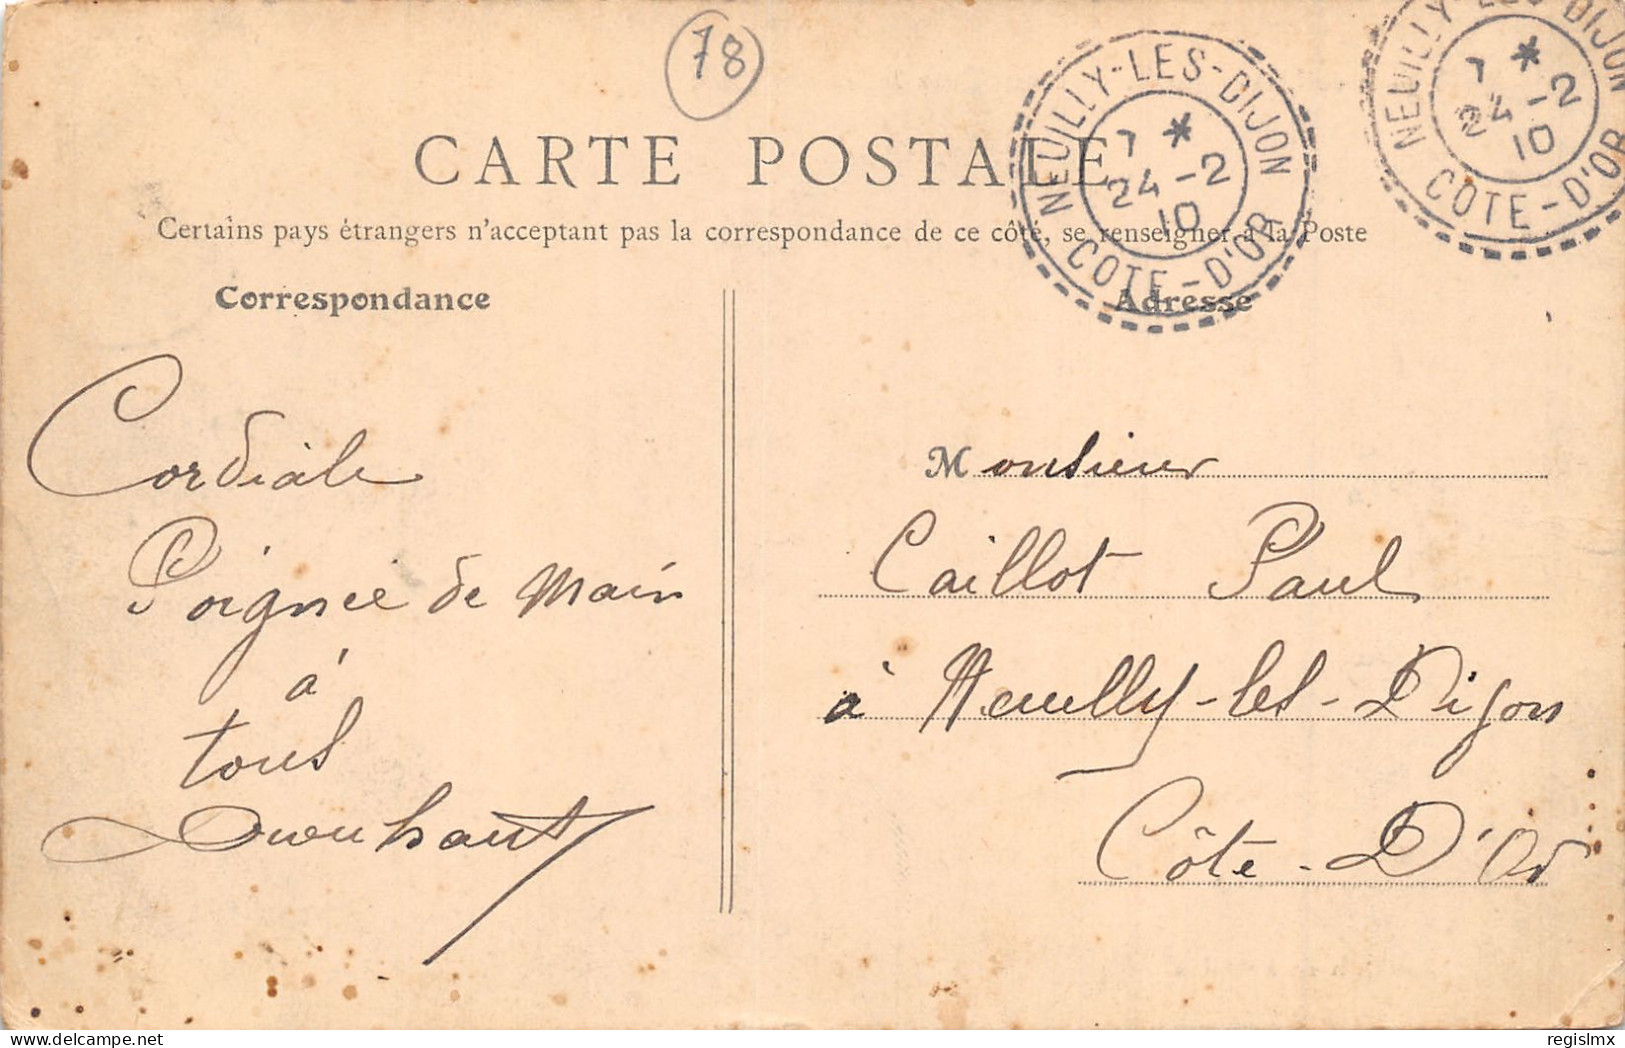 78
CARTE POSTALE
Certains pays étrangers n'acceptent pas la correspondance de ce côté, se renseigner à la Poste
Correspondance
Adresse
NEUILLY-LES-DIJON
7 *
24 -2
10
COTE-D'OR
NEUILLY-LES-DIJON
7 *
24 -2
10
COTE-D'OR
Cordiale
Poignée de main
à
tous
Monsieur
Caillot Paul
à Neuilly-les-Dijon
Côte-D'Or
regislmx